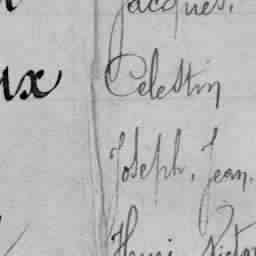 Jacques.
ux Célestin
Joseph, Jean.
Henri, Victor